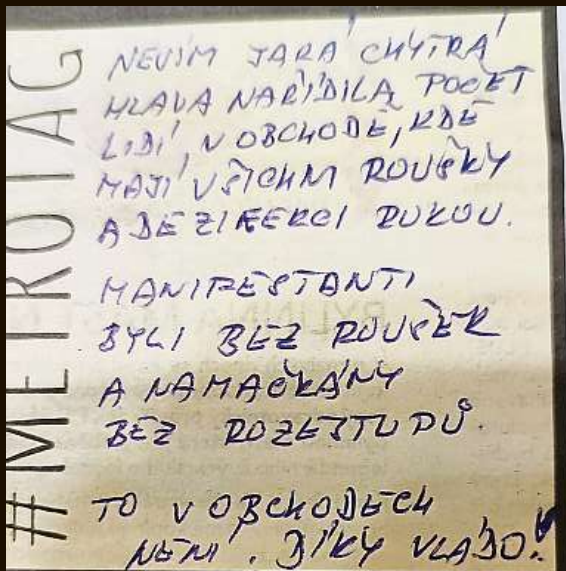 #METROTAG
NEVÍM JARÁ CHYTRÁ
HLAVA NAŘÍDILA POČET
LIDÍ V OBCHODĚ, KDE
MAJÍ VŠICHNI ROUŠKY
A DEZIFEKCI RUKOU.
MANIFESTANTI
BYLI BEZ ROUŠEK
A NAMAČKÁNY
BEZ ROZESTUPŮ.
TO V OBCHODECH
NENÍ. DÍKY VLÁDO!